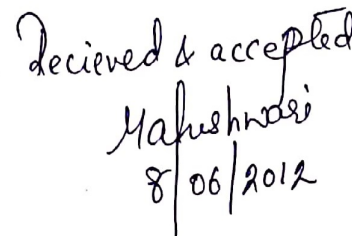 Recieved & accepted
Maheshwari
8/06/2012